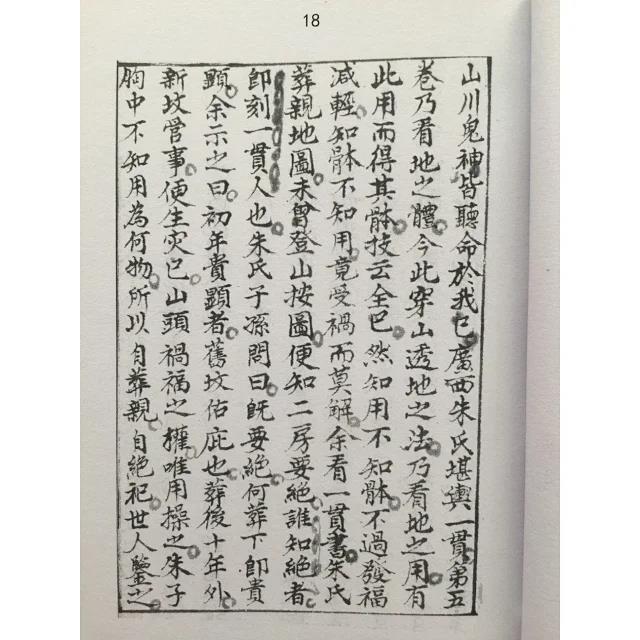 18
山川鬼神皆聽命於我已廣西朱氏堪輿一貫第五
巻乃看地之體今此穿山透地之法乃看地之用有
此用而得其骵技云全已然知用不知骵不過發福
減輕知骵不知用竟受禍而莫解余看一貫書朱氏
葬親地圖未曾登山按圖便知二房要絕誰知絕者
即刻一貫人也朱氏子孫問曰既要絕何葬下即貴
顕余示之曰初年貴顕者舊坟佑庇也葬後十年外
新坟管事便生灾已山頭禍福之權唯用操之朱子
胸中不知用為何物所以自葬親自絕祀世人鑒之